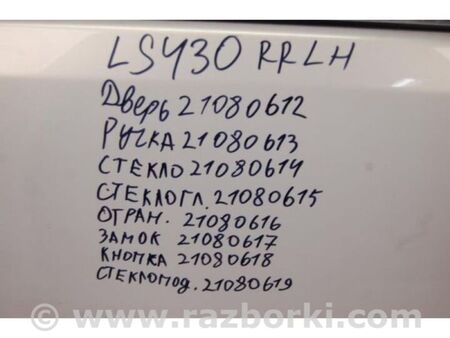 LSY30 RRLH
Дверь 21080612
РУЧКА 21080613
СТЕКЛО 21080614
СТЕКЛОГЛ. 21080615
ОГРАН. 21080616
ЗАМОК 21080617
КНОПКА 21080618
СТЕКЛОПОД. 21080619
www.razborki.com